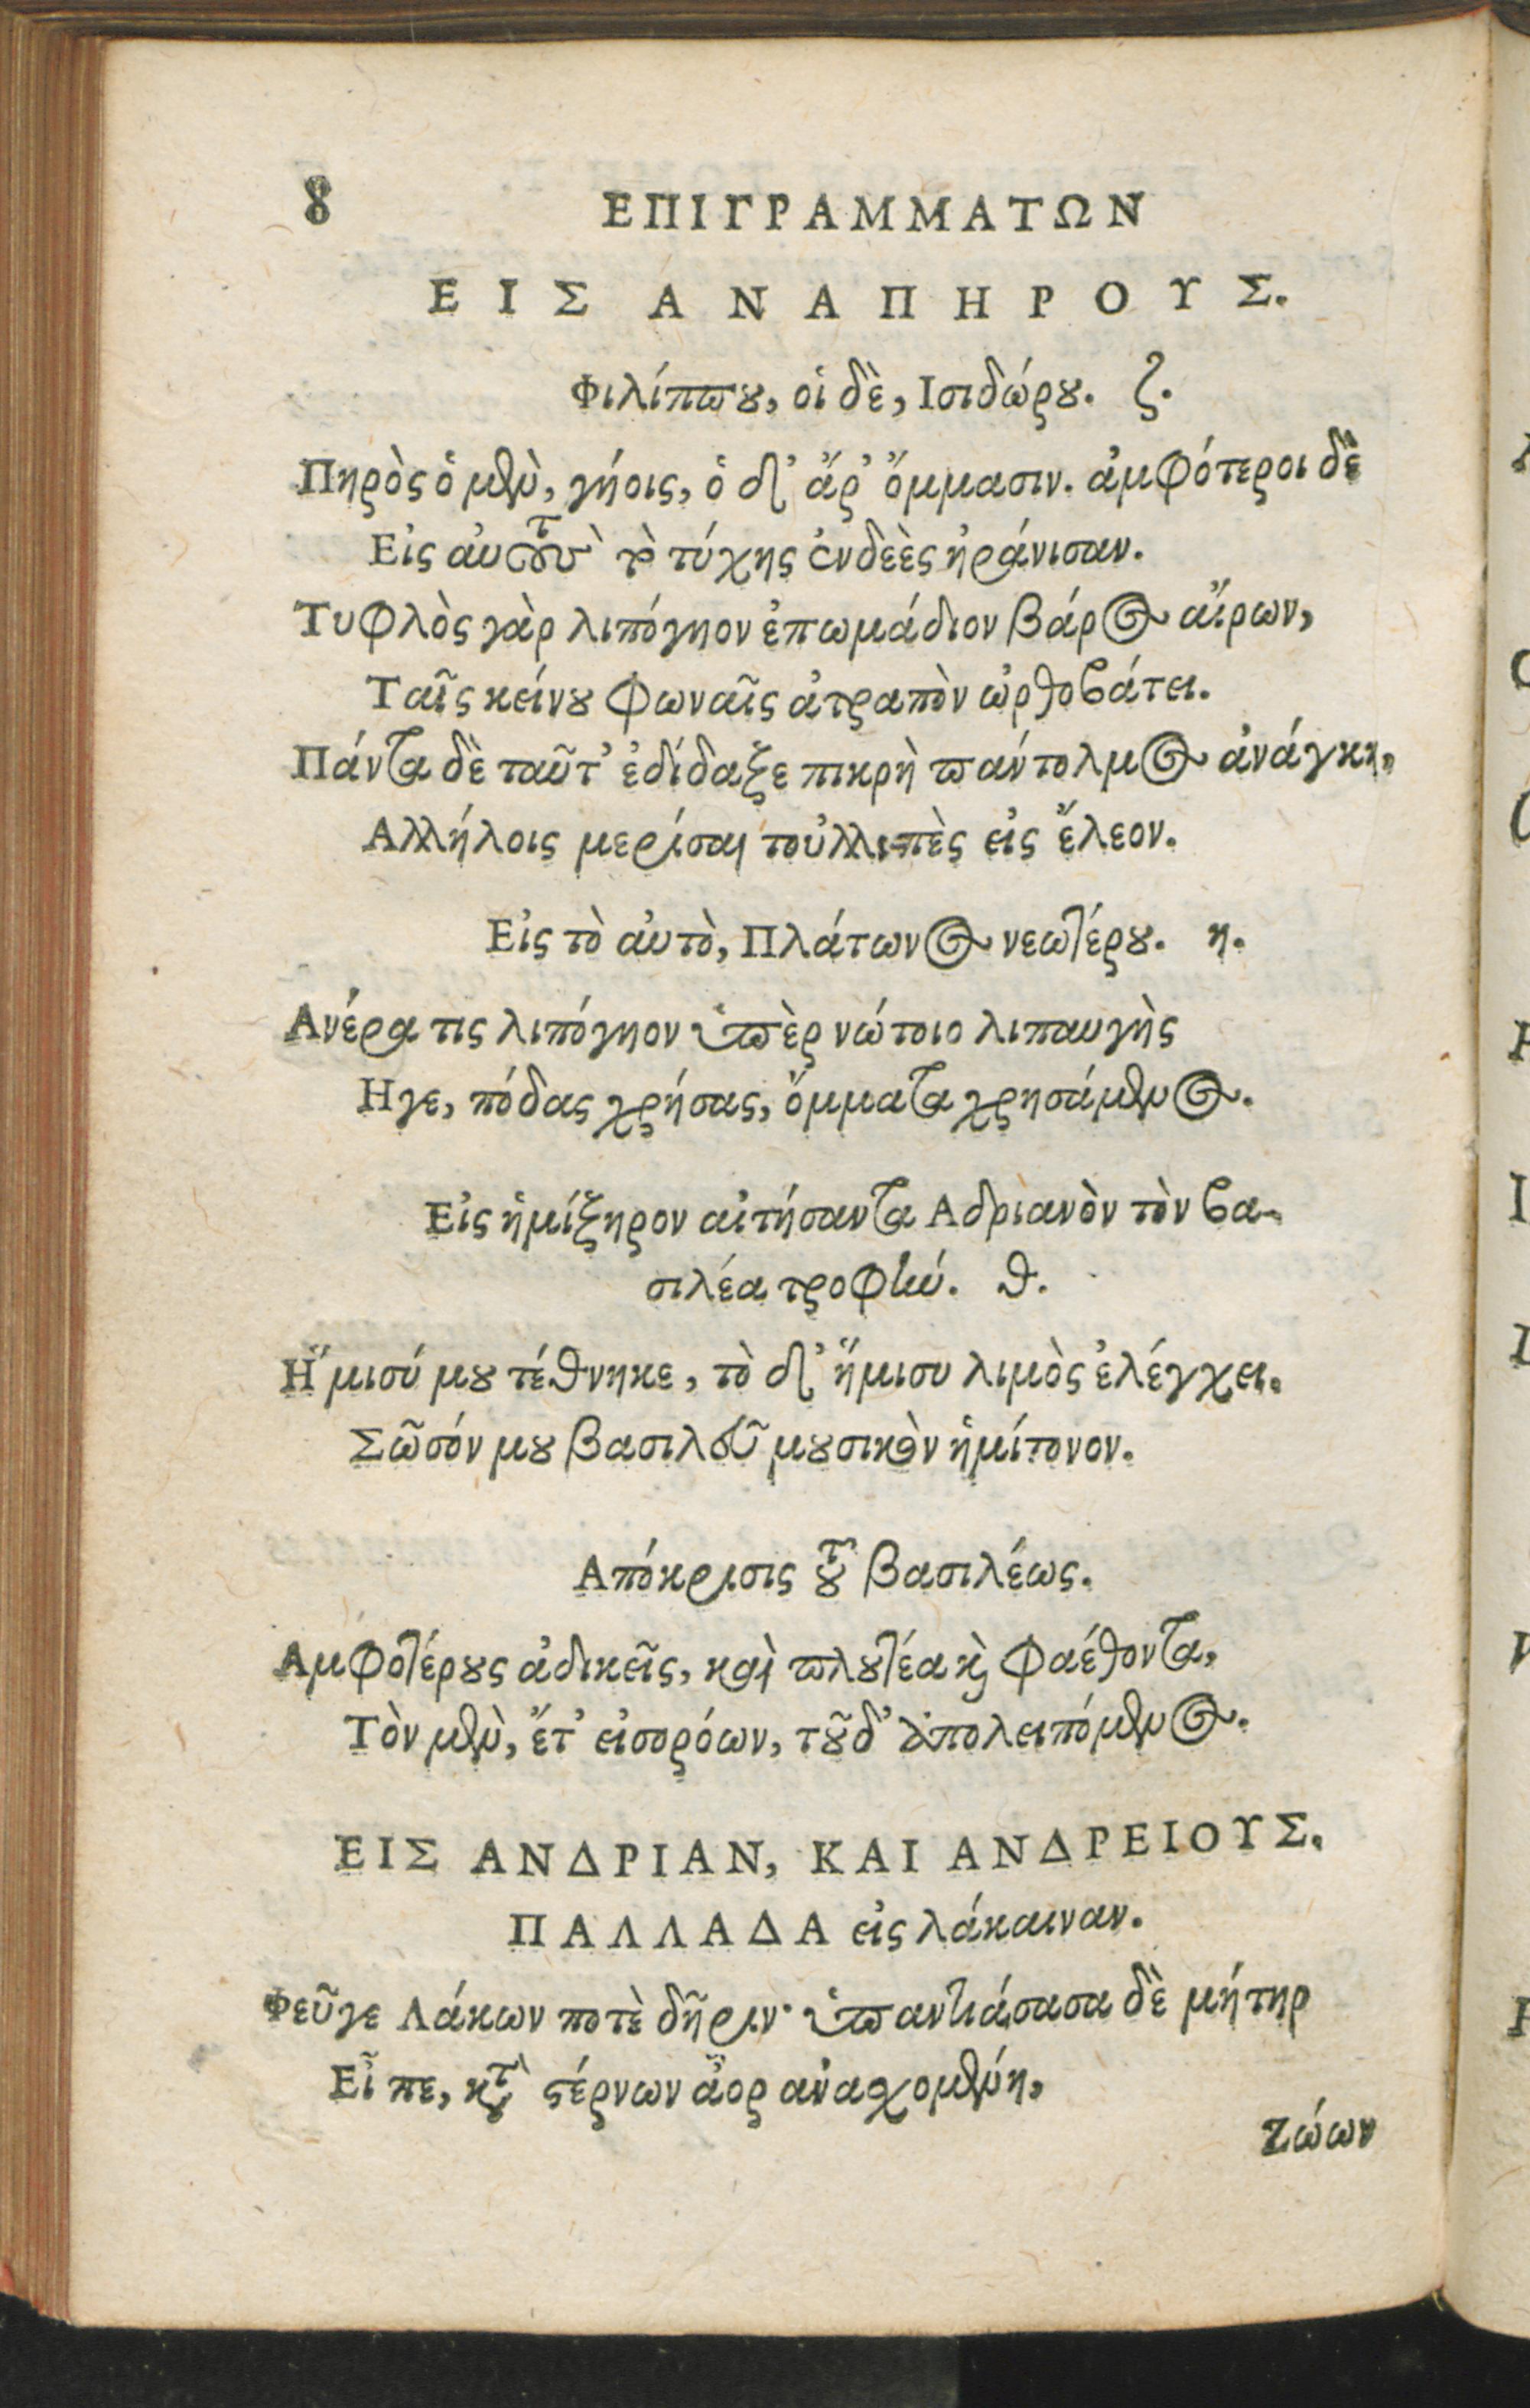 8 ΕΠΙΓΡΑΜΜΑΤΩΝ
ΕΙΣ ΑΝΑΠΗΡΟΥΣ.
Φιλίππου, οἱ δὲ, Ισιδώρου. ζ.
Πηρὸς ὁ μὲν, γήοις, ὁ δ' ἄρ' ὄμμασιν. ἀμφότεροι δὲ
Εἰς αὑτοὺς τὸ τύχης ἐνδεὲς ἠράνισαν.
Τυφλὸς γὰρ λιπόγηον ἐπωμάδιον βάρος αἴρων,
Ταῖς κείνου φωναῖς ἀτραπὸν ὠρθοβάτει.
Πάντα δὲ ταῦτ' ἐδίδαξε πικρὴ πάντολμος ἀνάγκη,
Αλλήλοις μερίσαι τοὐλλιπὲς εἰς ἔλεον.
Εἰς τὸ αὐτὸ, Πλάτωνος νεωτέρου. η.
Ανέρα τις λιπόγηον ὑπὲρ νώτοιο λιπαυγὴς
Ηγε, πόδας χρήσας, ὄμματα χρησάμενος.
Εἰς ἡμίξηρον αἰτήσαντα Αδριανὸν τὸν βα-
σιλέα τροφήν. θ.
Ἥμισύ μου τέθνηκε, τὸ δ' ἥμισυ λιμὸς ἐλέγχει.
Σῶσόν μου βασιλεῦ μουσικὸν ἡμίτονον.
Απόκρισις τοῦ βασιλέως.
Αμφοτέρους ἀδικεῖς, καὶ πλουτέα καὶ φαέθοντα,
Τὸν μὲν, ἔτ' εἰσορόων, τοῦ δ' ἀπολειπόμενος.
ΕΙΣ ΑΝΔΡΙΑΝ, ΚΑΙ ΑΝΔΡΕΙΟΥΣ.
ΠΑΛΛΑΔΑ εἰς λάκαιναν.
Φεῦγε Λάκων ποτὲ δῆριν· ὑπαντιάσασα δὲ μήτηρ
Εἶπε, κατὰ στέρνων ἆορ ἀνασχομένη,
Ζώων